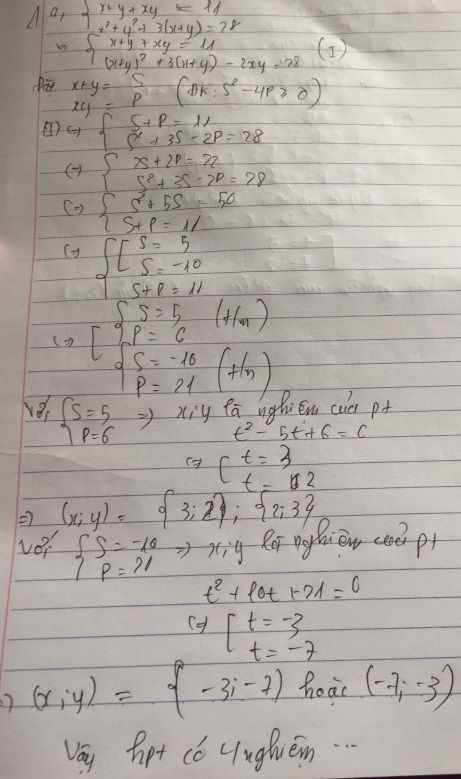 1/ a, { x+y+xy = 11
x²+y²+3(x+y)=28
⇔ { x+y+xy = 11
(x+y)²+3(x+y)-2xy=28 (I)
Đặt x+y = S
xy = P (ĐK: S²-4P≥0)
(I) ⇔ { S+P=11
S²+3S-2P=28
⇔ { 2S+2P=22
S²+3S-2P=28
⇔ { S²+5S = 50
S+P=11
⇔ { [ S = 5
S = -10
S+P = 11
{ S = 5 (t/m)
⇔ [ P = 6
{ S = -10
P = 21 (t/m)
Với { S=5 ⇒ x;y là nghiệm của pt
P=6 t²-5t+6=0
⇔ [ t = 3
t = 2
⇒ (x;y) = {3;2}; {2;3}
Với { S=-10 ⇒ x;y là nghiệm của pt
P=21
t²+10t+21=0
⇔ [ t = -3
t = -7
⇒ (x;y) = { -3;-7) hoặc (-7;-3)
Vậy hpt có 4 nghiệm ...